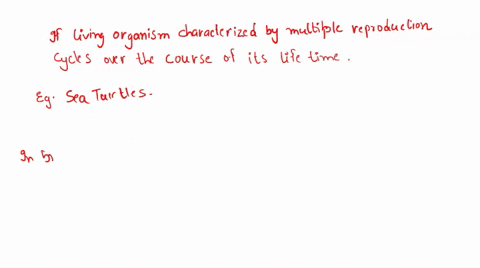 If living organism characterized by multiple reproduction
cycles over the course of its life time.
Eg. Sea Turtles.
In